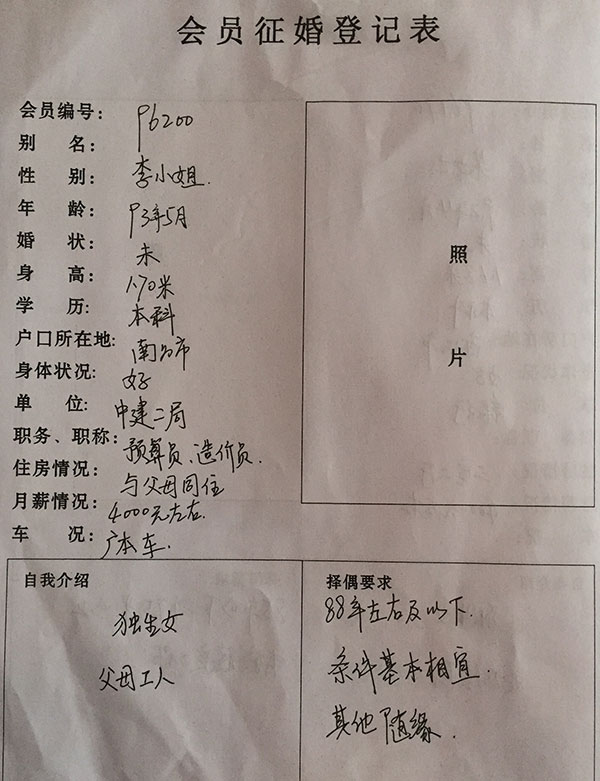 会员征婚登记表
会员编号: P6200
别 名:
性 别: 李小姐.
年 龄: 93年5月
婚 状: 未
身 高: 1.70米
学 历: 本科
户口所在地: 南昌市
身体状况: 好
单 位: 中建二局
职务、职称: 预算员、造价员.
住房情况: 与父母同住
月薪情况: 4000元左右.
车 况: 广本车.
照
片
自我介绍
独生女
父母工人
择偶要求
88年左右及以下.
条件基本相宜.
其他随缘.